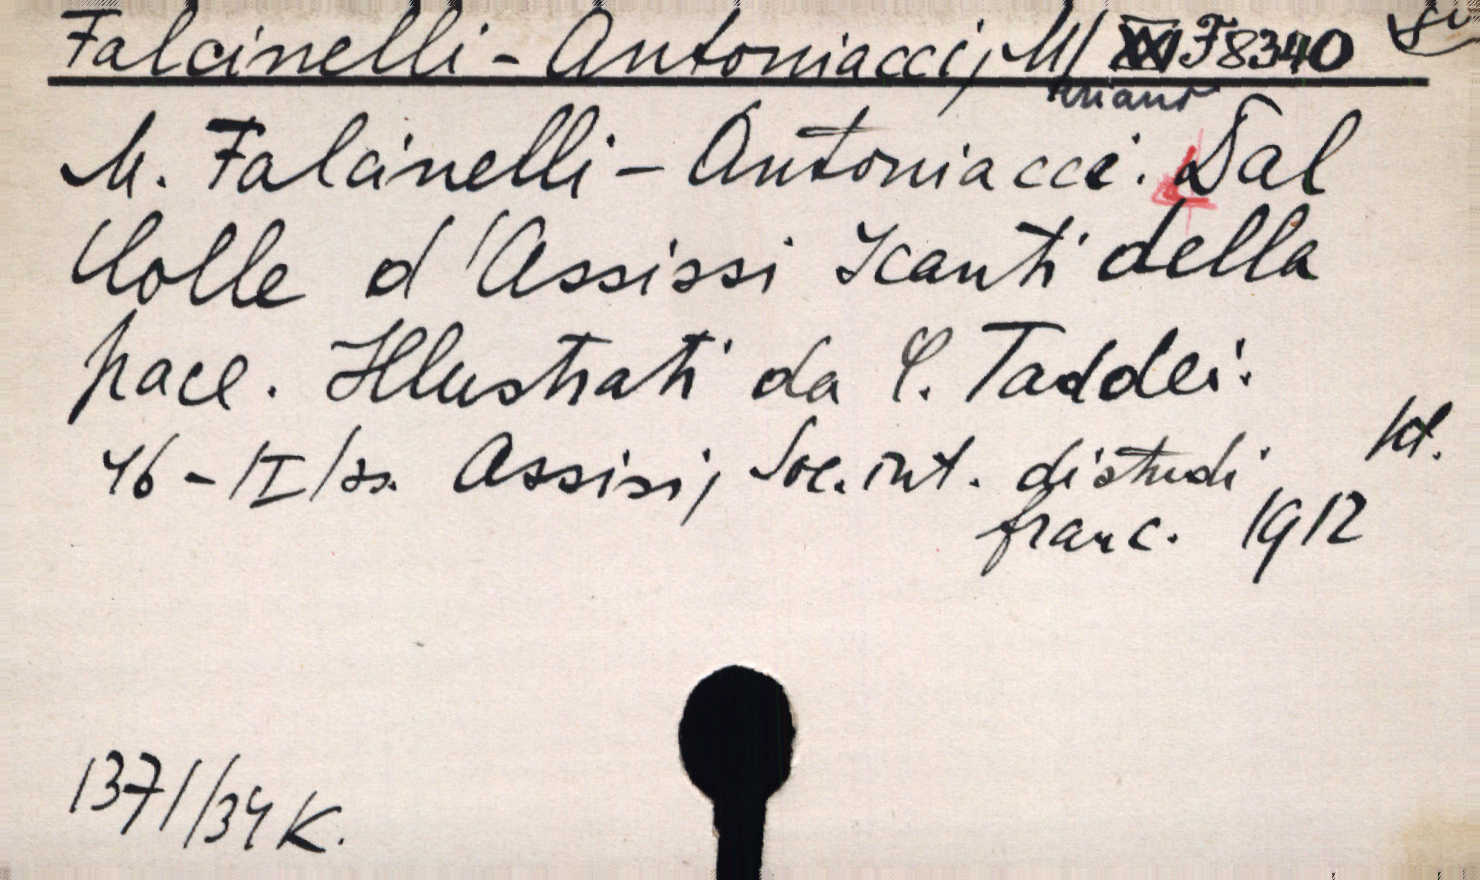 Falcinelli-Antoniacci, M/ F8340
M. Falcinelli-Antoniacci. Dal
Colle d'Assissi I canti della
pace. Illustrati da C. Taddei.
46-/I/ss. Assisi, Soc. int. di studi Kt.
franc. 1912
1371/34 K.